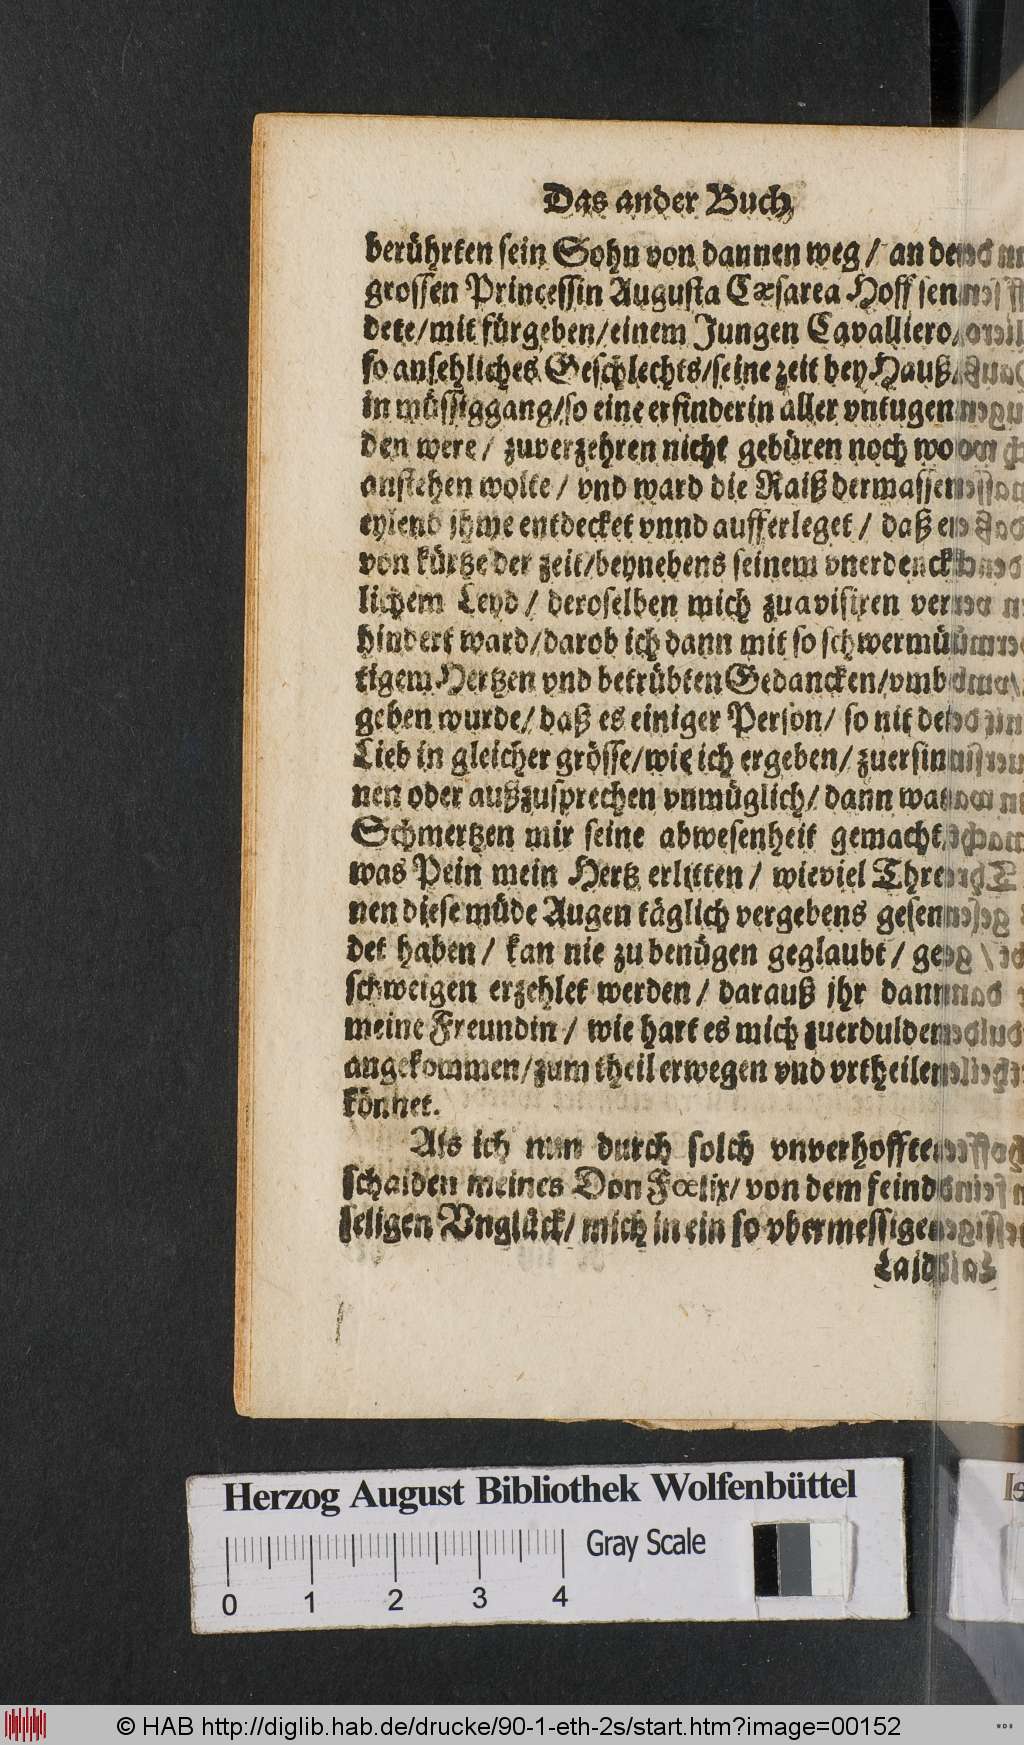 Das ander Buch
berührten sein Sohn von dannen weg / an der
grossen Princessin Augusta Cæsarea Hoff sen⸗
dete/mit fürgeben/einem Jungen Cavalliero/
so ansehliches Geschlechts/seine zeit bey Hauß/
in müssiggang/so eine erfinderin aller vntugen⸗
den were / zuverzehren nicht gebüren noch wol
anstehen wolte / vnd ward die Raiß dermassen
eylend jhme entdecket vnnd aufferleget / daß er
von kürtze der zeit/beynebens seinem vnerdenck⸗
lichem Leyd / deroselben mich zuavisiren ver⸗
hindert ward/darob ich dann mit so schwermü⸗
tigem Hertzen vnd betrübten Gedancken/vmb⸗
geben wurde/ daß es einiger Person/ so nit der
Lieb in gleicher grösse/wie ich ergeben/ zuersin⸗
nen oder außzusprechen vnmüglich/ dann was
Schmertzen mir seine abwesenheit gemacht/
was Pein mein Hertz erlitten / wieviel Thre⸗
nen diese müde Augen täglich vergebens gesen⸗
det haben / kan nie zu benügen geglaubt / ge⸗
schweigen erzehlet werden / darauß jhr dann
meine Freundin / wie hart es mich zuerdulden
angekommen/zum theil erwegen vnd vrtheilen
könnet.
Als ich nun durch solch vnverhofften
schaiden meines Don Fœlix/ von dem feind⸗
seligen Vnglück/ mich in ein so vbermessigen
Laid
Herzog August Bibliothek Wolfenbüttel
Gray Scale
0 1 2 3 4
© HAB http://diglib.hab.de/drucke/90-1-eth-2s/start.htm?image=00152